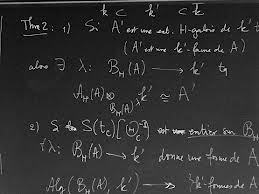 k ⊂ k' ⊂ k̄
Thm 2 : 1) Si A' est une ext. H-galois de k' tq
(A' est une k'-forme de A)
alors ∃ λ: B_H(A) → k' tq
A_H(A) ⊗ k' ≃ A'
B_H(A)
2) Si S(t_c)[ ] est entier sur B_H
∀λ: B_H(A) → k' donne une forme de A
Alg(B_H(A), k') → {k'-formes de A